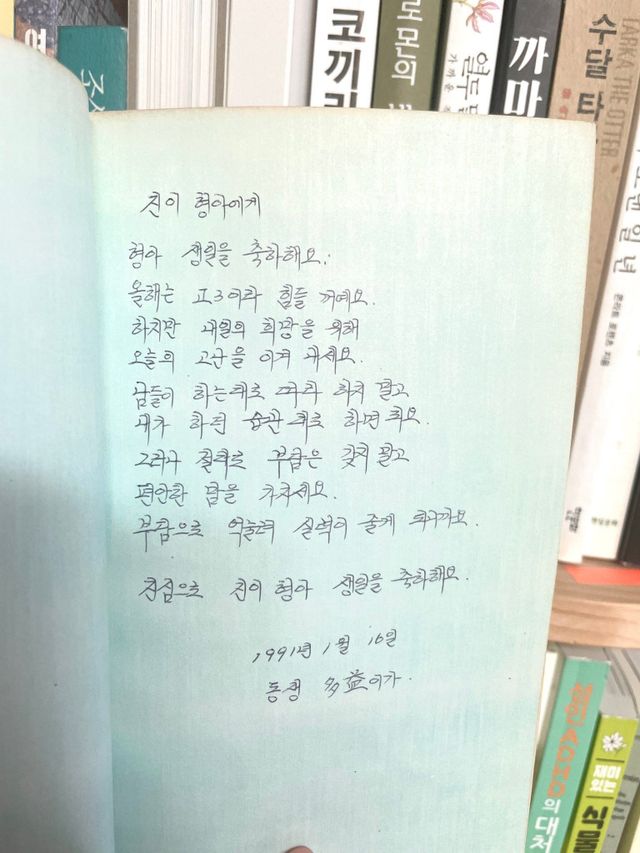 코끼리
로몬의
열두
까마
수달 타
TARKA THE OTTER
일 년
진이 형아에게
형아 생일을 축하해요.
올해는 고3이라 힘들 꺼예요.
하지만 내일의 희망을 위해
오늘의 고난을 이겨 나세요.
남들이 하는대로 따라 하지 말고
내가 하던 습관대로 하면 되요.
그리고 절대로 부담은 갖지 말고
편안한 맘을 가지세요.
부담으로 억눌려 실력이 줄게 되니까요.
진심으로 진이 형아 생일을 축하해요.
1991년 1월 16일
동생 多益이가.
성인 ADHD의 대처
재미있는 식물